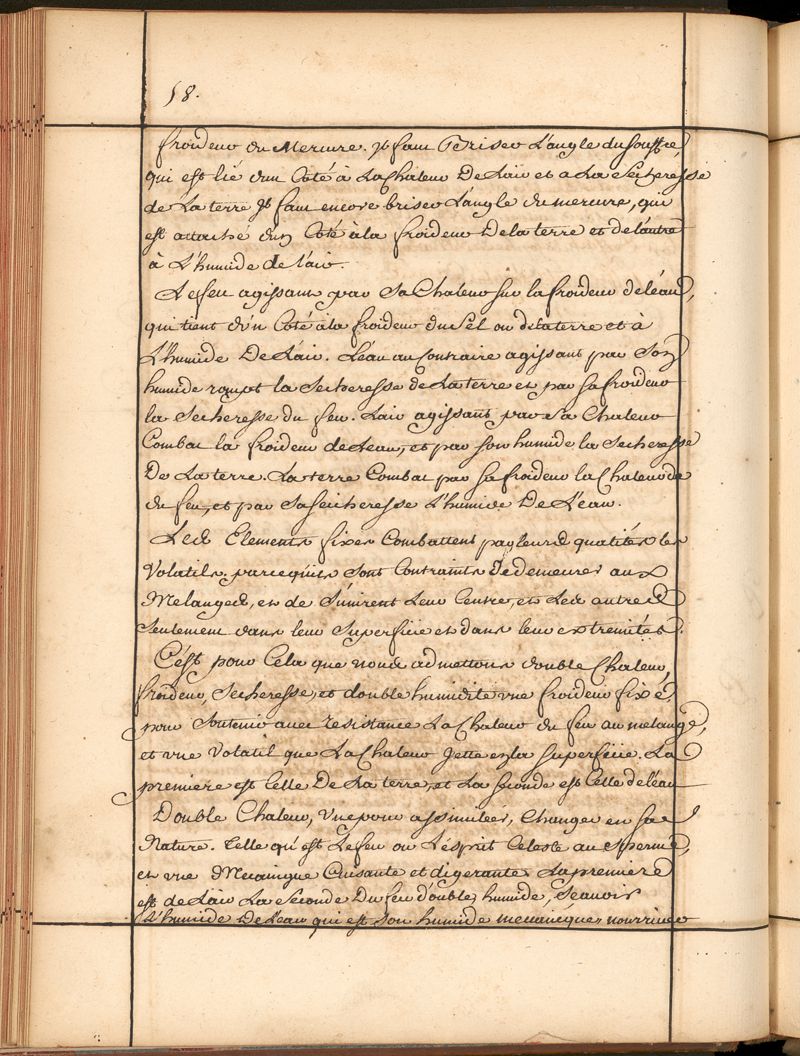 18.
froideur du Mercure. Il faut Briser L'angle du souffre,
qui est lié d'un Coté à La Chaleur De L'air et a La Seicheresse
de La terre Il faut encore briser L'angle du mercure, qui
est attaché d'un Coté à la froideur De la terre et de l'autre
à L'humide de l'air.
Le feu agissant par Sa Chaleur sur la froideur de l'éau,
qui tient d'un Coté à la froideur du Sel ou de la terre et à
L'humide De L'air. L'éau au Contraire agissant par Son
humide rompt la Secheresse de La terre et par sa froideur
la Secheresse du feu. L'air agissant par Sa Chaleur
Combat la froideur de L'eau, et par son humide la Secheresse
De La terre. La terre Combat par sa froideur la Chaleur de
du feu, et par Sa seicheresse L'humide De L'éau.
Les Elements fixes Combattent par leurs qualités les
Volatils. parcequ'ils Sont Contraints De demeurer aux
Melanges, et de S'unirent Leur Centre, et Les autres
Seulement dans leur Superficie et dans leur extremités.
C'est pour Cela que nous admettons double Chaleur,
froideur, Secheresse, et double humidité vne froideur fixe,
pour Soutenir auec resistance La Chaleur du feu au melange,
et vne Volatil que La Chaleur Jette en la superficie. La
premiere est Celle De La terre, et La seconde est Celle de l'éau
Double Chaleur, Vne pour assimiler, Changer en sa
Nature. Celle qui est Le feu ou L'ésprit Celeste au Sperme,
et vne Mecanique Cuisante et digerante La premiere
est de L'air La Seconde Du feu double humide, Scauoir
L'humide De L'eau qui est Son humide mecanique, nourricier